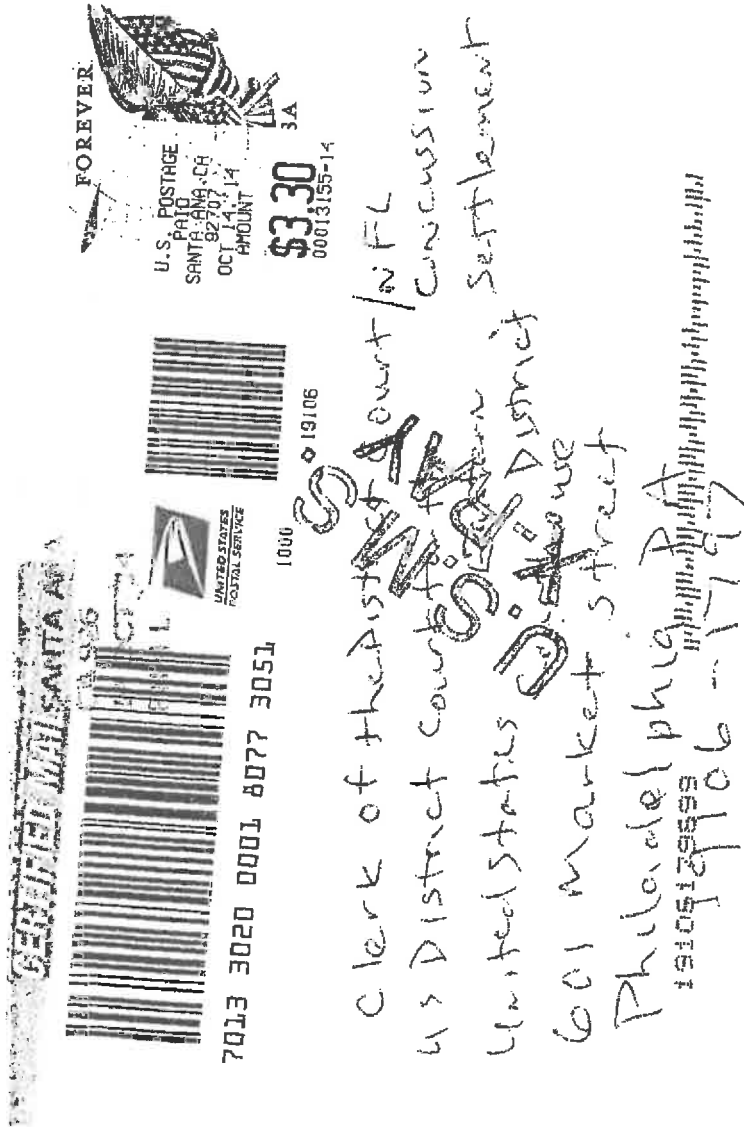 CERTIFIED MAIL
SANTA ANA
7013 3020 0001 8077 3051
UNITED STATES
POSTAL SERVICE
1000
19106
FOREVER
U.S. POSTAGE
PAID
SANTA ANA, CA
92707
OCT 14, 14
AMOUNT
$3.30
00013155-14
Clerk of the District Court / NFL
Concussion
Settlement
US District Court for the Eastern District
United States Courthouse
601 Market Street
Philadelphia PA
19106-1797
X-RAY
U.S.M.S.